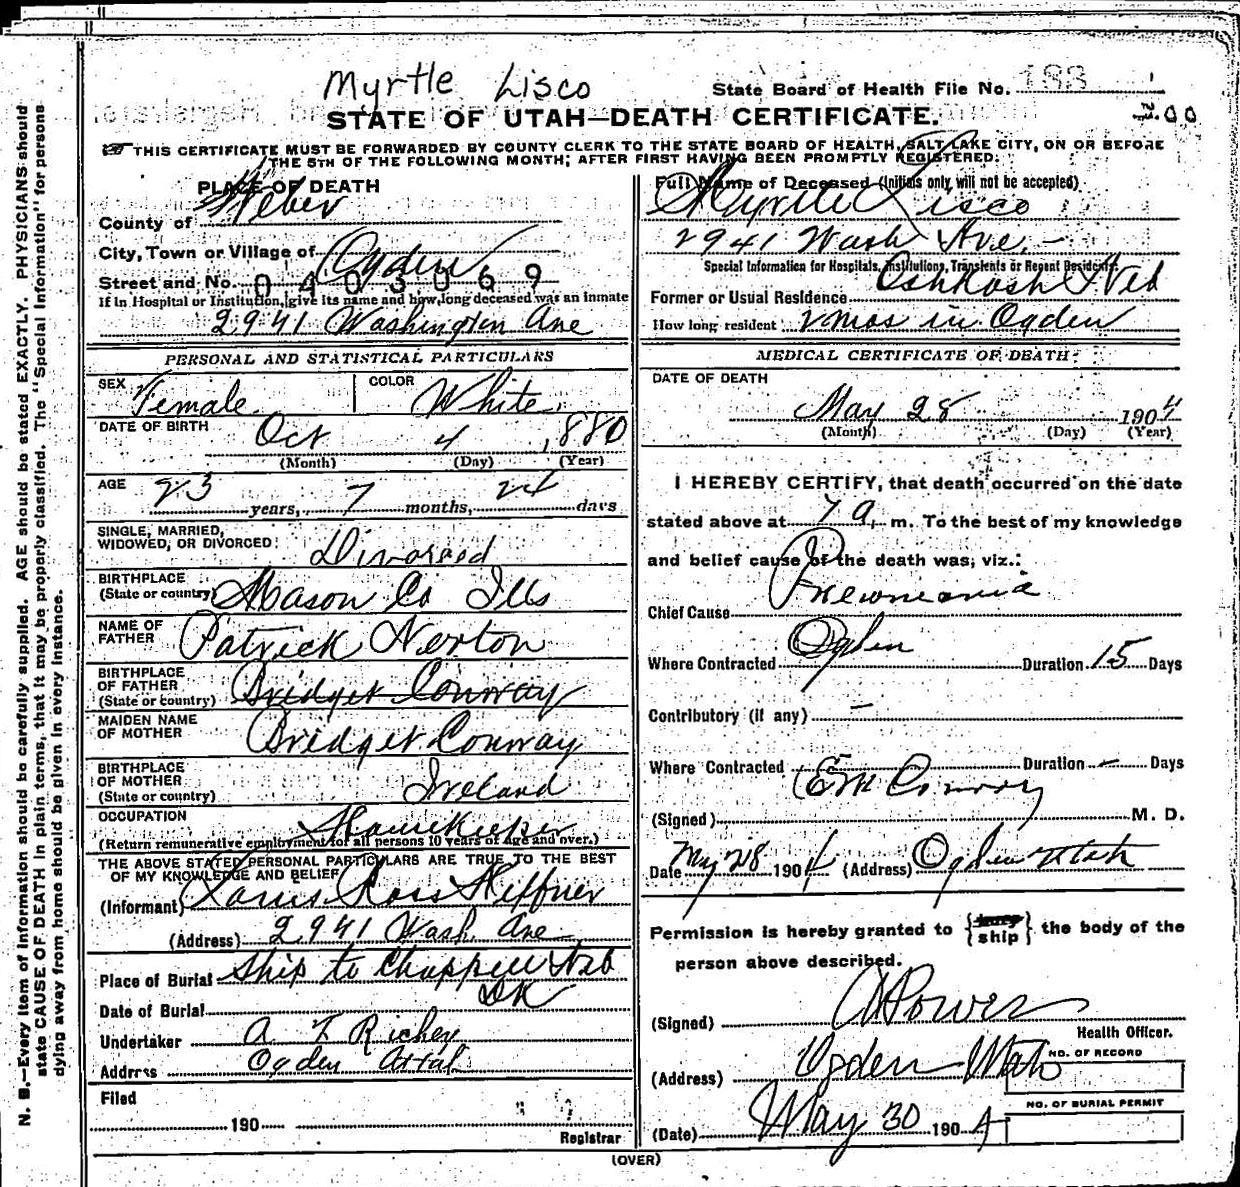 Myrtle Lisco
State Board of Health File No. 183
STATE OF UTAH—DEATH CERTIFICATE.
2.00
THIS CERTIFICATE MUST BE FORWARDED BY COUNTY CLERK TO THE STATE BOARD OF HEALTH, SALT LAKE CITY, ON OR BEFORE
THE 5TH OF THE FOLLOWING MONTH; AFTER FIRST HAVING BEEN PROMPTLY REGISTERED.
N. B.—Every item of information should be carefully supplied. AGE should be stated EXACTLY. PHYSICIANS should
state CAUSE OF DEATH in plain terms, that it may be properly classified. The "Special Information" for persons
dying away from home should be given in every instance.
PLACE OF DEATH
County of Weber
City, Town or Village of Ogden
Street and No. 0403069
If in Hospital or Institution, give its name and how long deceased was an inmate
2941 Washington Ave
PERSONAL AND STATISTICAL PARTICULARS
SEX Female COLOR White
DATE OF BIRTH Oct 4, 1880
(Month) (Day) (Year)
AGE 23 years, 7 months, 24 days
SINGLE, MARRIED,
WIDOWED, OR DIVORCED: Divorced
BIRTHPLACE
(State or country) Mason Co Ills
NAME OF
FATHER Patrick Norton
BIRTHPLACE
OF FATHER
(State or country) Bridget Conway
MAIDEN NAME
OF MOTHER Bridget Conway
BIRTHPLACE
OF MOTHER
(State or country) Ireland
OCCUPATION Housekeeper
(Return remunerative employment for all persons 10 years of age and over.)
THE ABOVE STATED PERSONAL PARTICULARS ARE TRUE TO THE BEST
OF MY KNOWLEDGE AND BELIEF
(Informant) Ross Heffner
(Address) 2941 Wash Ave
Place of Burial Ship to Chappell Neb
Date of Burial DK
Undertaker A Richey
Address Ogden
Filed
190 Registrar
Full Name of Deceased (Initials only will not be accepted)
Myrtle Lisco
2941 Wash Ave.
Special Information for Hospitals, Institutions, Transients or Recent Residents:
Former or Usual Residence Oshkosh Neb
How long resident 2 mos in Ogden
MEDICAL CERTIFICATE OF DEATH
DATE OF DEATH
May 28 1904
(Month) (Day) (Year)
I HEREBY CERTIFY, that death occurred on the date
stated above at 7 a. m. To the best of my knowledge
and belief cause of the death was, viz.:
Chief Cause Pneumonia
Where Contracted Ogden Duration 15 Days
Contributory (if any) —
Where Contracted Duration — Days
(Signed) Conroy M. D.
Date May 28 1904 (Address) Ogden Utah
Permission is hereby granted to {bury ship} the body of the
person above described.
(Signed) Powers
Health Officer.
(Address) Ogden Utah
NO. OF RECORD
NO. OF BURIAL PERMIT
(Date) May 30 1904
(OVER)